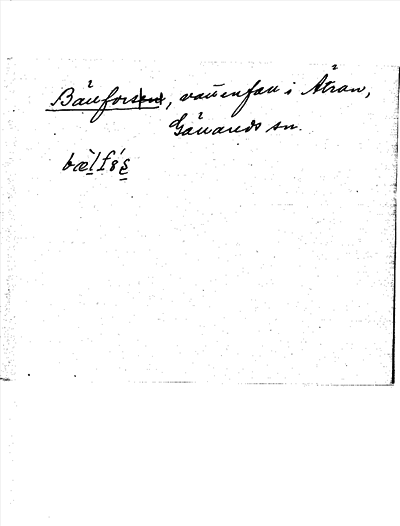 Bällforsen, vattenfall i Ätran,
Gällareds sn.
bæ̀lfɷ́s̨